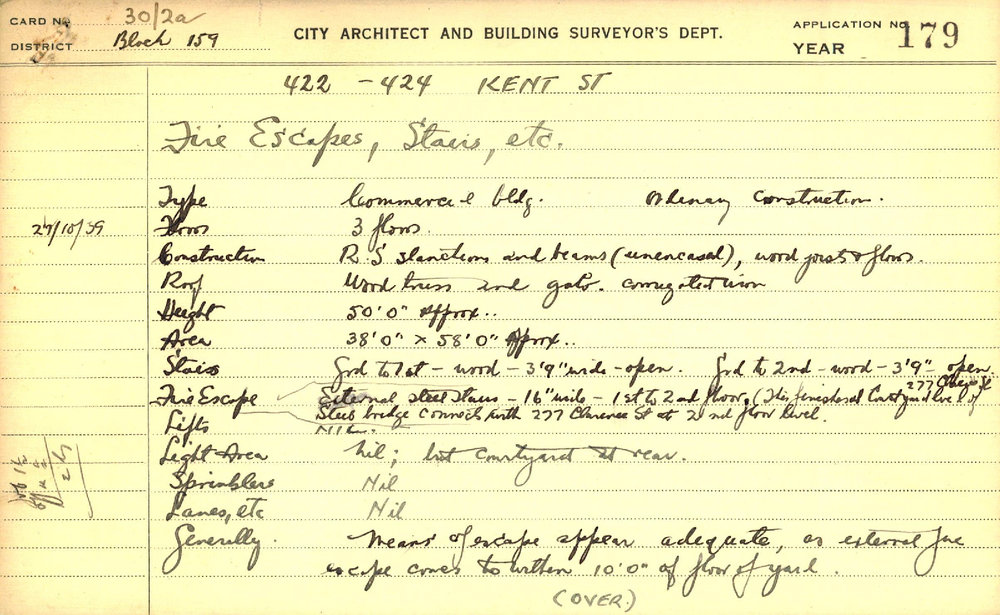 CARD No. 30/2a
DISTRICT Block 159
CITY ARCHITECT AND BUILDING SURVEYOR'S DEPT.
APPLICATION No. 179
YEAR
422 - 424 KENT ST
Fire Escapes, Stairs, etc.
Type Commercial bldg. Ordinary Construction.
27/10/59 Floors 3 floors.
Construction R.S stanctions and beams (unencased), wood joists & floors.
Roof Wood truss and galv. corrugated iron
Height 50'0" Approx..
Area 38'0" x 58'0" Approx..
Stairs Grd to 1st - wood - 3'9" wide - open. Grd to 2nd - wood - 3'9" - open.
Fire Escape External steel stairs - 16" wide - 1st to 2nd floor, (This finishes at Courtyard level of 277 Clarence St
Steel bridge connects with 277 Clarence St at 2nd floor level.
Lifts Nil.
Light Area Nil; but courtyard at rear.
Sprinklers Nil
Lanes, etc Nil
Generally. Means of escape appear adequate, as external fire
escape comes to within 10'0" of floor of yard.
(OVER.)